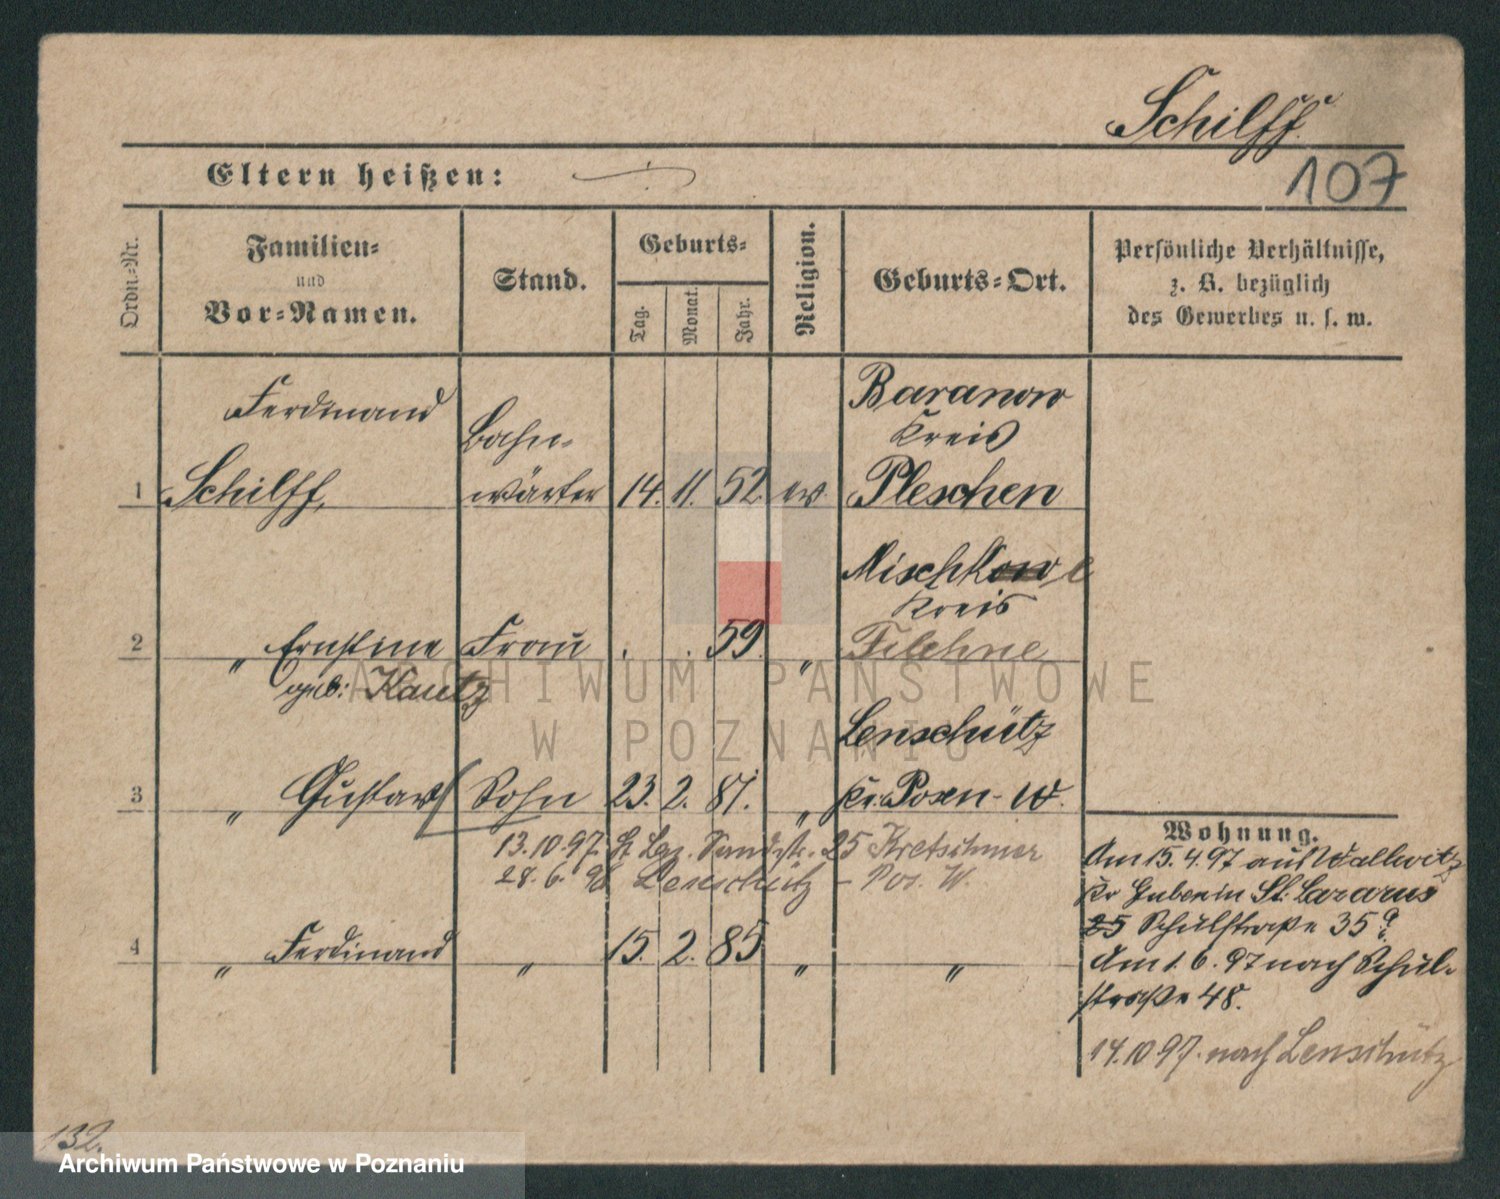 Schilff.
107
Eltern heißen:
Ordn.-Nr.
Familien-
und
Vor-Namen.
Stand.
Geburts-
Tag.
Monat.
Jahr.
Religion.
Geburts-Ort.
Persönliche Verhältnisse,
z. B. bezüglich
des Gewerbes u. s. w.
Ferdinand
Baranow
Bahn-
Kreis
1 Schilff, wärter 14. 11. 52. ev. Pleschen
Mischke
Kreis
2 " Ernstine Frau . . 59. " Filehne
geb: Kautz
Lenschütz
3 " Gustav Sohn 23. 2. 81. " Kr. Posen-W.
13.10.97. St Laz. Sandstr. 25 Kretschmer
28.6.98 Lenschütz - Pos. W.
4 " Ferdinand " 15. 2. 85 " "
Wohnung.
Am 15.4.97 aus Wallwitz
Kr Guben in St: Lazarus
25 Schulstraße 35
Am 1.6.97 nach Schul-
straße 48.
14.10.97. nach Lenschütz
132.
ARCHIWUM PAŃSTWOWE
W POZNANIU
Archiwum Państwowe w Poznaniu